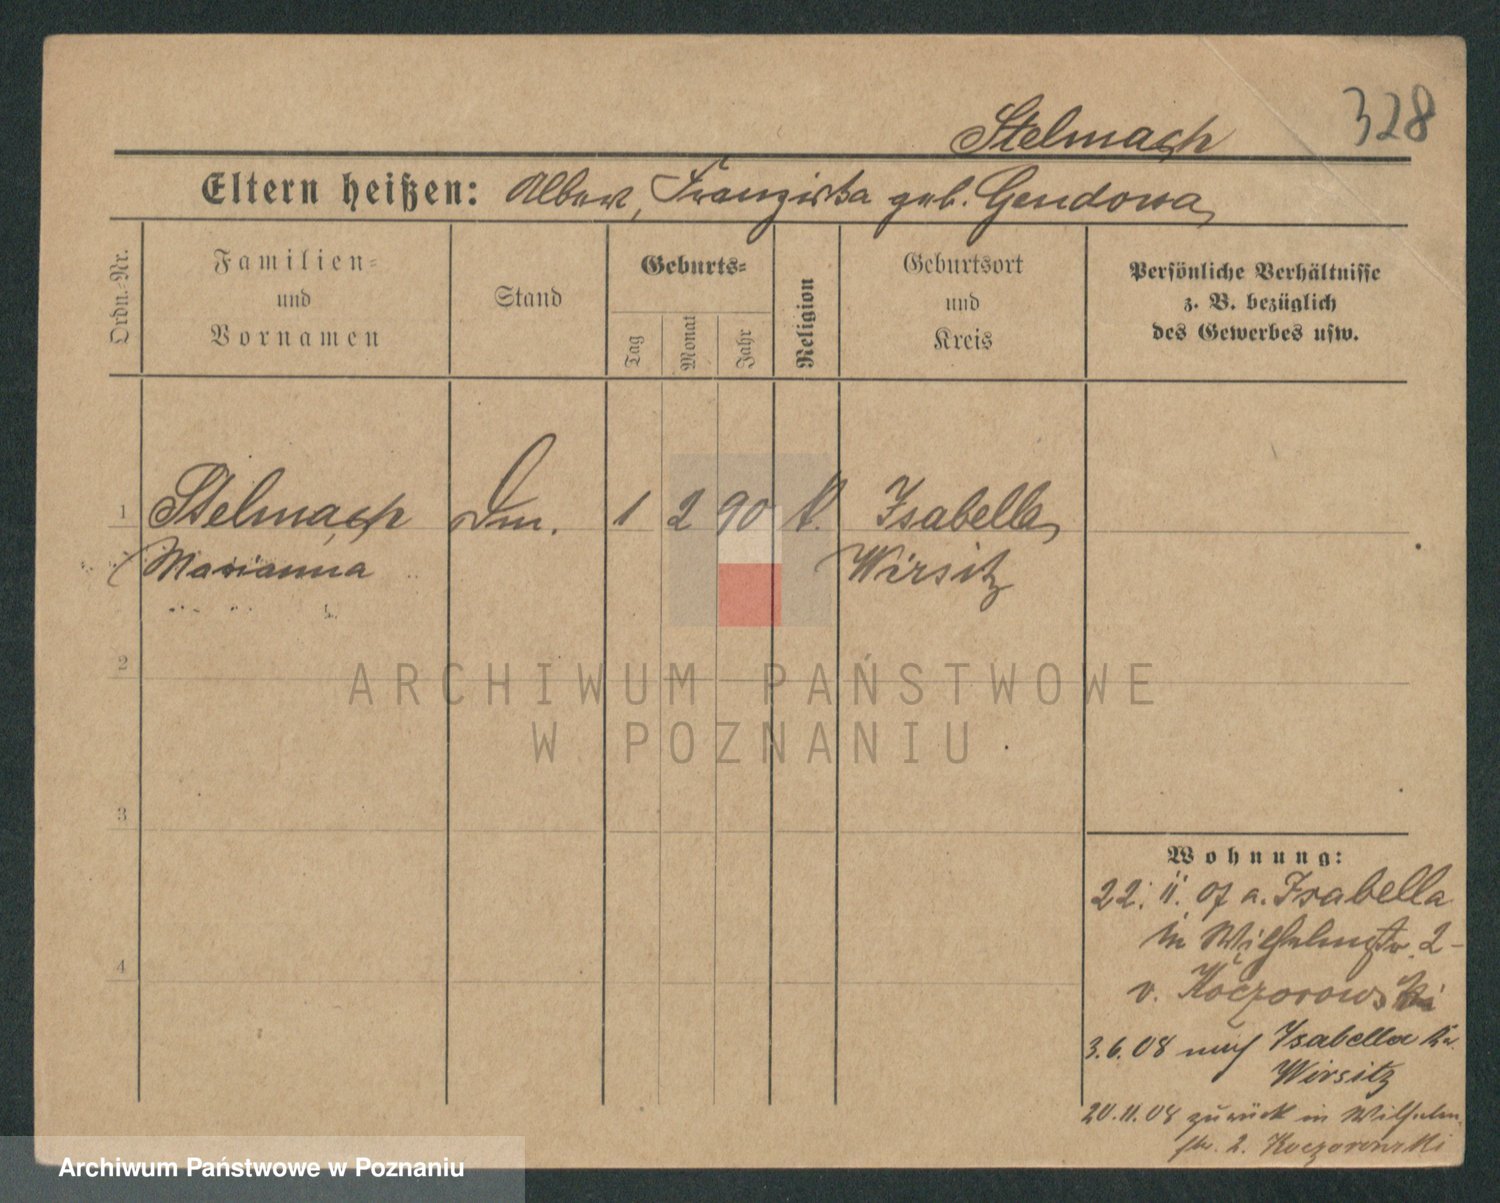 328
Stelmach
Eltern heißen: Albert, Franziska geb. Gendowa
Ordn.=Nr.
Familien=
und
Vornamen
Stand
Geburts=
Tag
Monat
Jahr
Religion
Geburtsort
und
Kreis
Persönliche Verhältnisse
z. B. bezüglich
des Gewerbes usw.
1 Stelmach Dm. 1 2 90 k. Isabella
Marianna Wirsitz
2
ARCHIWUM PAŃSTWOWE
W POZNANIU
3
Wohnung:
22. 11. 07 a. Isabella
in Wilhelmstr. 2
v. Koczorowski
4
3.6.08 nach Isabella Kr.
Wirsitz
20.11.08 zurück in Wilhelm
str. 2. Koczorowski
Archiwum Państwowe w Poznaniu